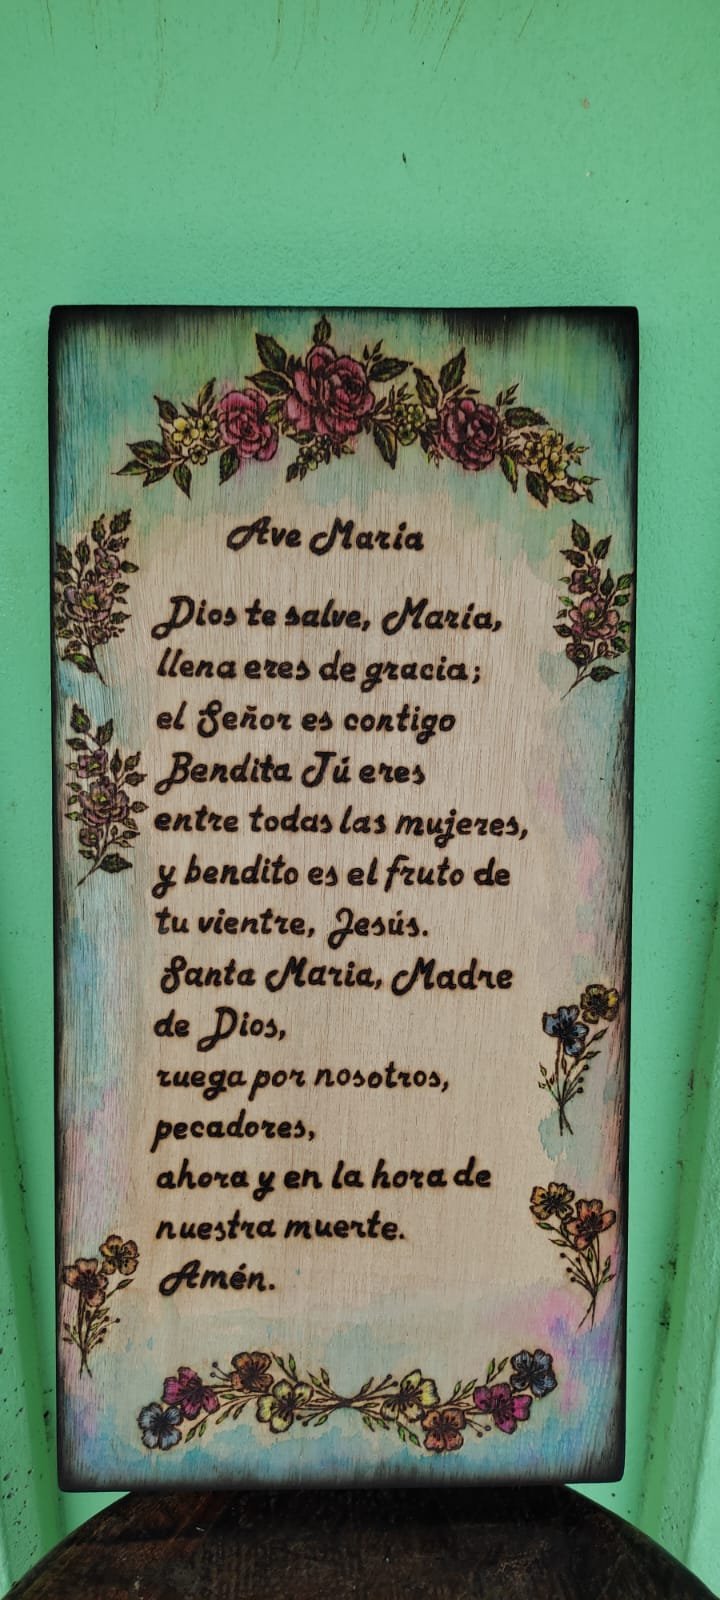 Ave María
Dios te salve, María,
llena eres de gracia;
el Señor es contigo
Bendita Tú eres
entre todas las mujeres,
y bendito es el fruto de
tu vientre, Jesús.
Santa Maria, Madre
de Dios,
ruega por nosotros,
pecadores,
ahora y en la hora de
nuestra muerte.
Amén.